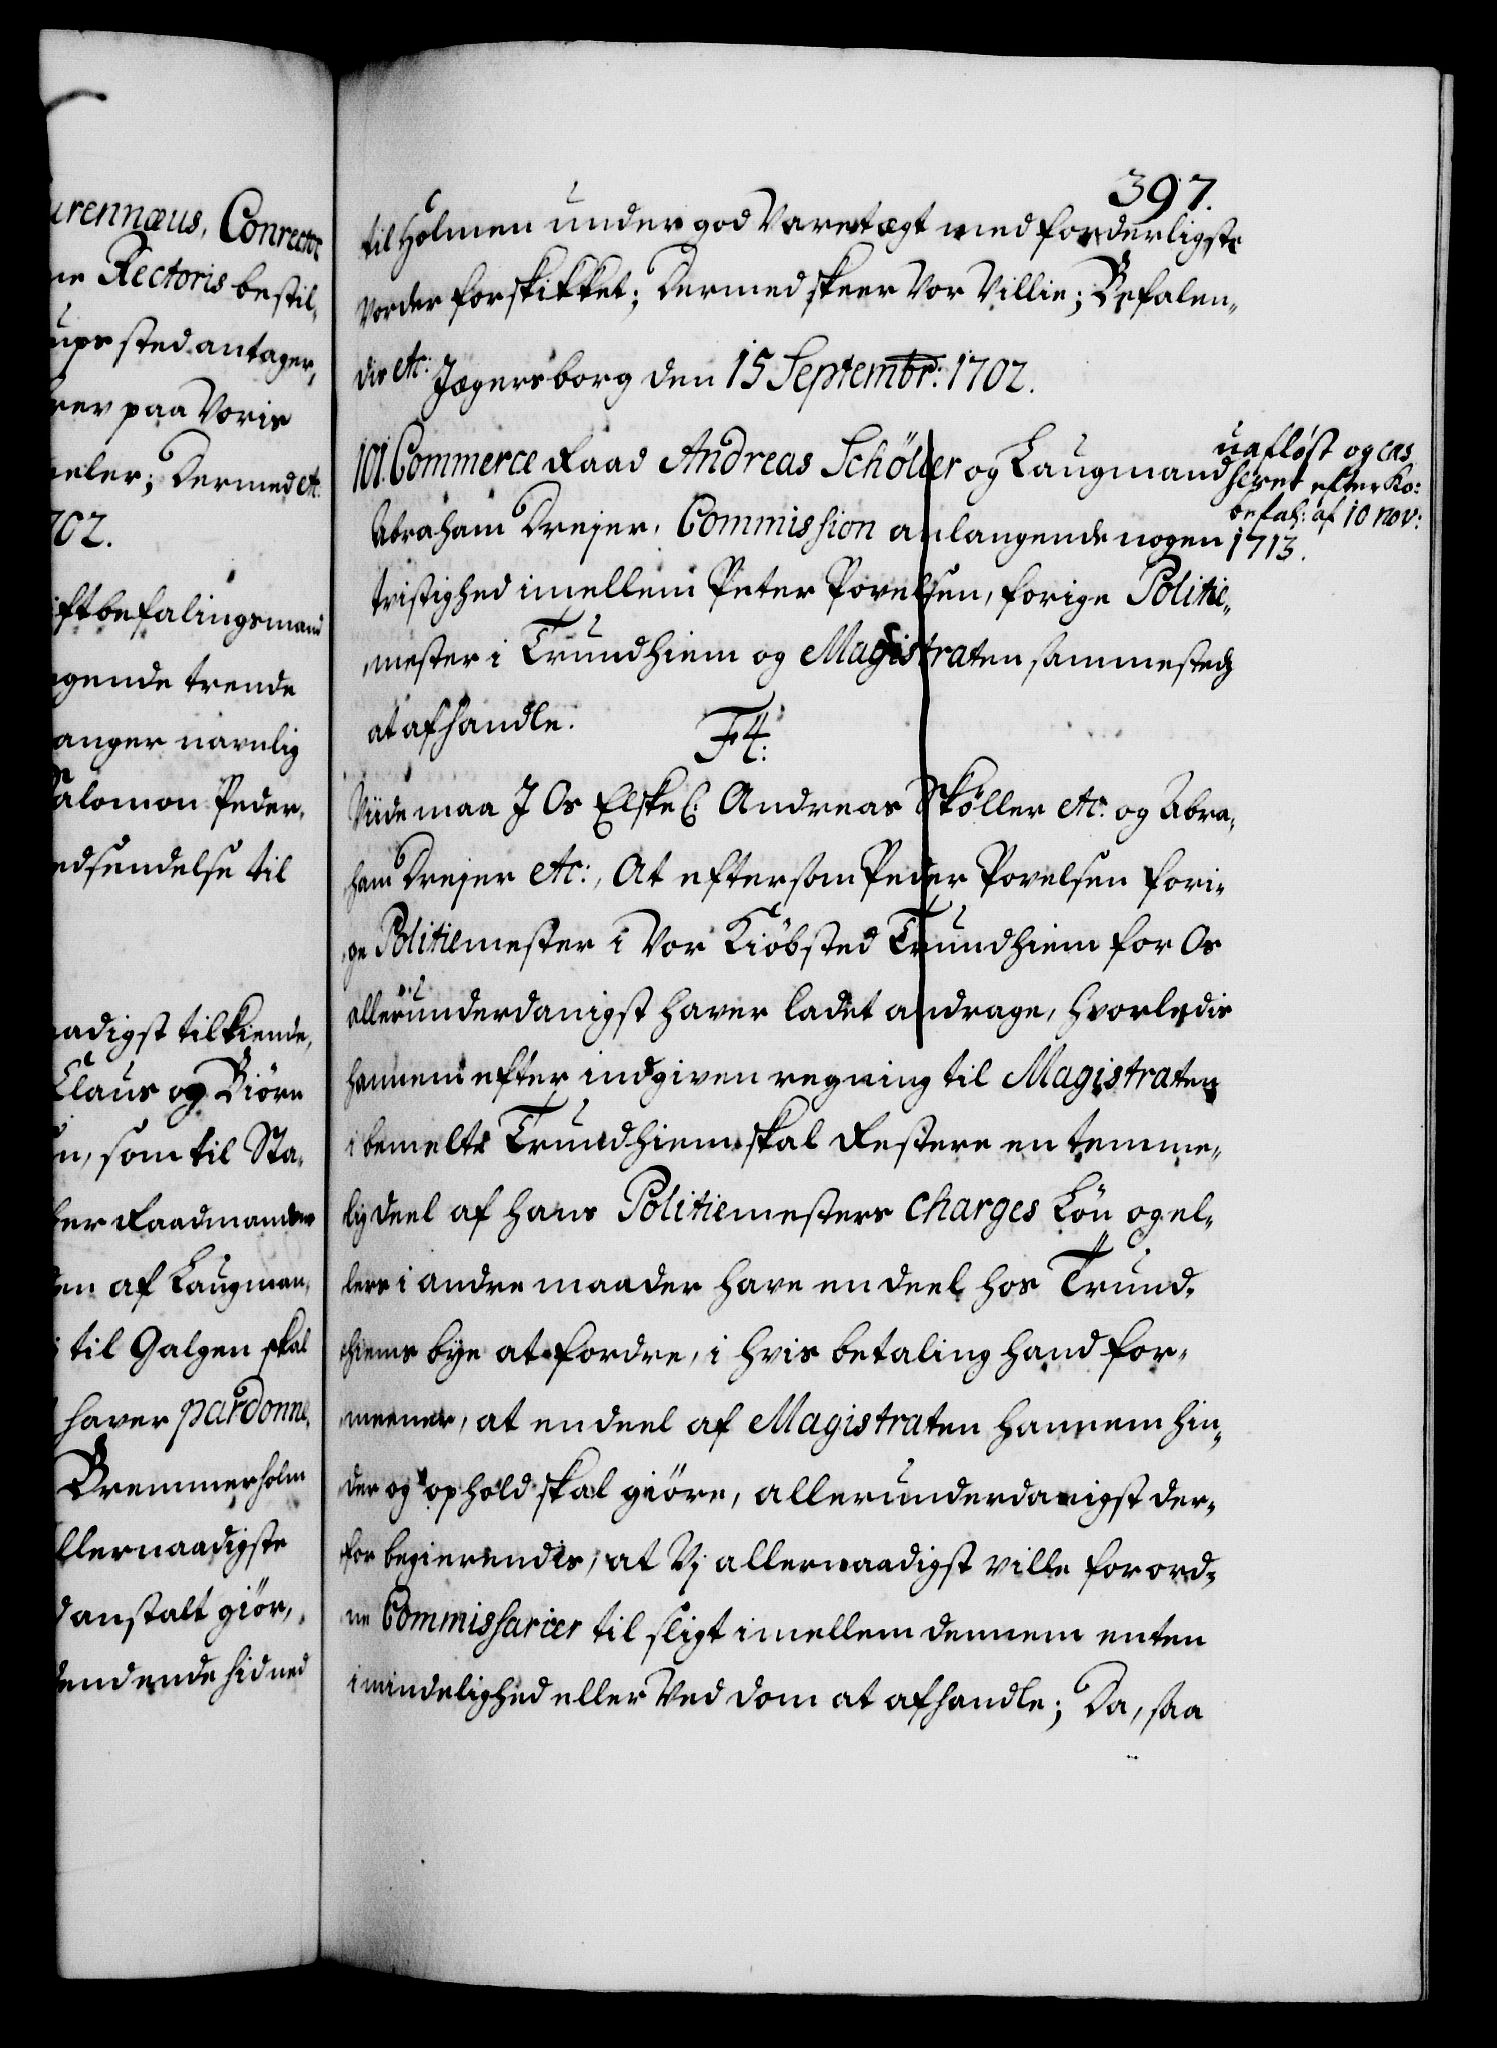 urennæus, Conrector
ne Rectoris bestil-
ups sted antager,
brev paa Voris
neler; Dermed etc.
702.
iftbefalingsmand
gende trende
anger navnlig
Salomon Peder-
edsendelse til
naadigst tilkiende,
Claus og Biörn
n, som til Sta-
ber Raadmanden
en af Laugman-
til Galgen skal
haver pardonne-
Bremmerholm
llernaadigste
d anstalt giör,
sendende hid ned
397.
til Holmen under god Varetægt med forderligste
vorder forskikket; Dermed skeer Vor Villie; Befalen-
dis etc: Jægersborg den 15 Septembr: 1702.
101. Commerce Raad Andreas Schöller og Laugmand
Abraham Drejer, Commission anlangende nogen
tvistighed imellem Peter Povelsen, forige Politie-
mester i Trundhiem og Magistraten sammesteds
at afhandle.
F4.
uafløst og cas
seret efter Ko:
befal: af 10 nov:
1713.
Viide maa J Os Elskel: Andreas Sköller etc: og Abra-
ham Drejer etc:, At eftersom Peder Povelsen fori-
ge Politiemester i Vor Kiöbsted Trundhiem for Os
allerunderdanigst haver ladet andrage, hvorledis
hannem efter indgiven regning til Magistraten
i bemelte Trundhiem skal Restere en temme-
lig deel af hans Politiemesters charges Lön og el-
lers i andre maader have en deel hos Trund-
hiems bye at fordre, i hvis betaling hand for-
meener, at en deel af Magistraten hannem hin-
der og ophold skal giöre, allerunderdanigst der-
for begierendis, at Vj allernaadigst ville forord-
ne Commissarier til sligt imellem dennem enten
i mindelighed eller Ved dom at afhandle; Da, saa